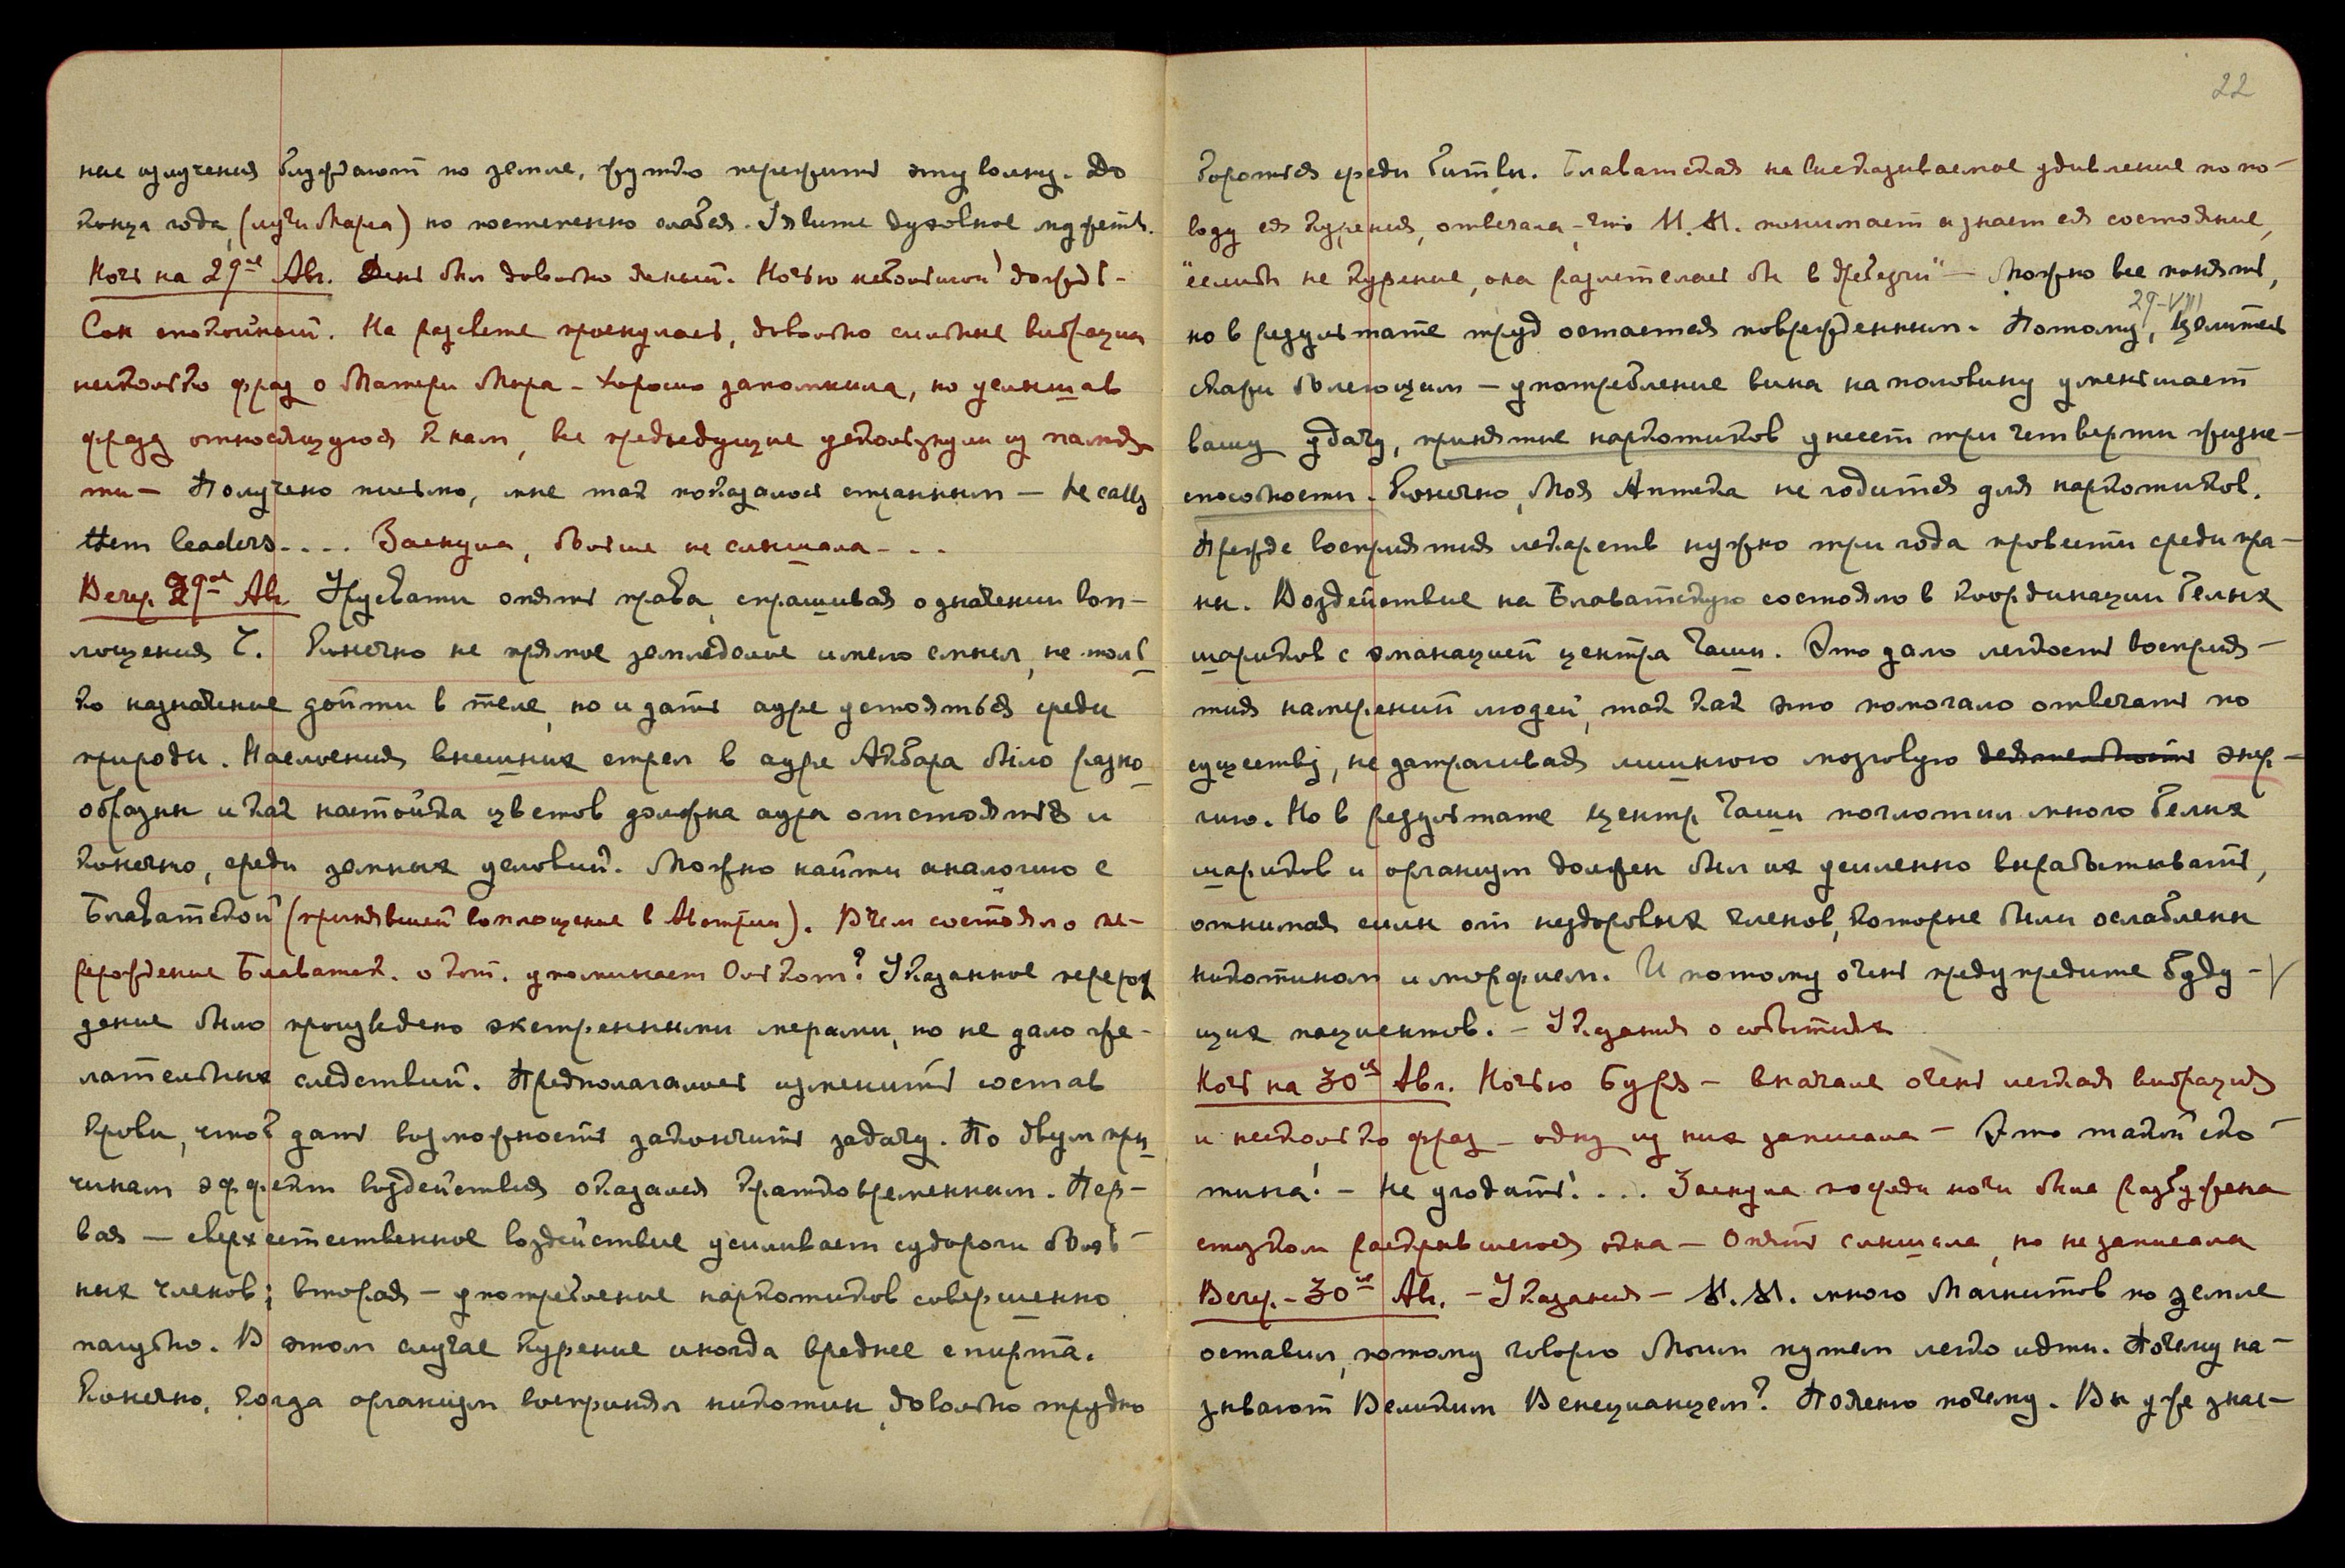 ние излучения блуждают по земле, нужно пережить эту волну. До
конца года, (лучи Марса) но постепенно слабея. Явите духовное мужеств.
Ночь на 29ое Авг. День был довольно ясный. Ночью небольшой дождь –
Сон спокойный. На рассвете проснулась, довольно сильные вибрации
несколько фраз о Матери Мира – хорошо запомнила, но услышав
фразу относящуюся к нам, все предыдущие ускользнули из памя-
ти – Получено письмо, мне так показалось странным – he calls
them leaders.... Заснула, больше не слышала ...
Вечер. 29ое Авг. Урусвати опять права, спрашивая о значении воп-
лощения Ч. Конечно не прямое земледелие имело смысл, не толь
ко назначение дойти в теле, но и дать ауре устояться среди
природы. Наслоения внешних стрел в ауре Акбара было разно
образны и как настойка цветов должна аура отстояться и
конечно, среди земных условий. Можно найти аналогию с
Блаватской (принявшей воплощение в Австрии). В чем состояло пе-
рерождение Блаватск. о кот. упоминает Олькот? Указанное перерож
дение было произведено экстренными мерами, но не дало же-
лательных следствий. Предполагалось изменить состав
крови, чтоб дать возможность закончить задачу. По двум при
чинам эффект воздействия оказался кратковременным. Пер-
вая – сверхестественное воздействие усиливает судороги боль-
ных членов; вторая – употребление наркотиков совершенно
пагубно. В этом случае курение иногда вреднее спирта.
Конечно, когда организм воспринял никотин, довольно трудно
22
бороться среди битвы. Блаватская на высказываемое удивление по по-
воду ея курения, отвечала, что М.М. понимает и знает ея состояние,
"еслиб не курение, она разлетелась бы в дребезги" – Можно все понять,
29-VIII
но в результате труд остается поврежденным. Потому, Целитель
скажи болеющим – употребление вина на половину уменьшает
вашу удачу, принятие наркотиков унесет три четверти жизне-
способности. Конечно, Моя Аптека не годится для наркотиков.
Прежде восприятия лекарств нужно три года провести среди пра-
ны. Воздействие на Блаватскую состояло в координации белых
шариков с эманацией центра Чаши. Это дало легкость восприя-
тия намерений людей, так как это помогало отвечать по
существу, не затрагивая лишнюю мозговую деятельность энер-
гию. Но в результате центр Чаши поглотил много белых
шариков и организм должен был их усиленно вырабатывать,
отнимая силы от нездоровых членов, которые были ослаблены
никотином и морфием. И потому очень предупредите буду-
щих пациентов. – Указания о событиях
Ночь на 30ое Авг. Ночью буря – вначале очень легкая вибрация
и несколько фраз – одну из них записала – Это такой ско
тина! – Не угодить!... Заснула посреди ночи была разбужена
стуком раскрывшегося окна – Опять слышала, но не записала
Вечер. – 30ое Авг. – Указания – М.М. много Магнитов по земле
оставил, потому говорю Моим путем легко идти. Почему на-
зывают Великим Венецианцем? Поясню почему. Вы уже знае-